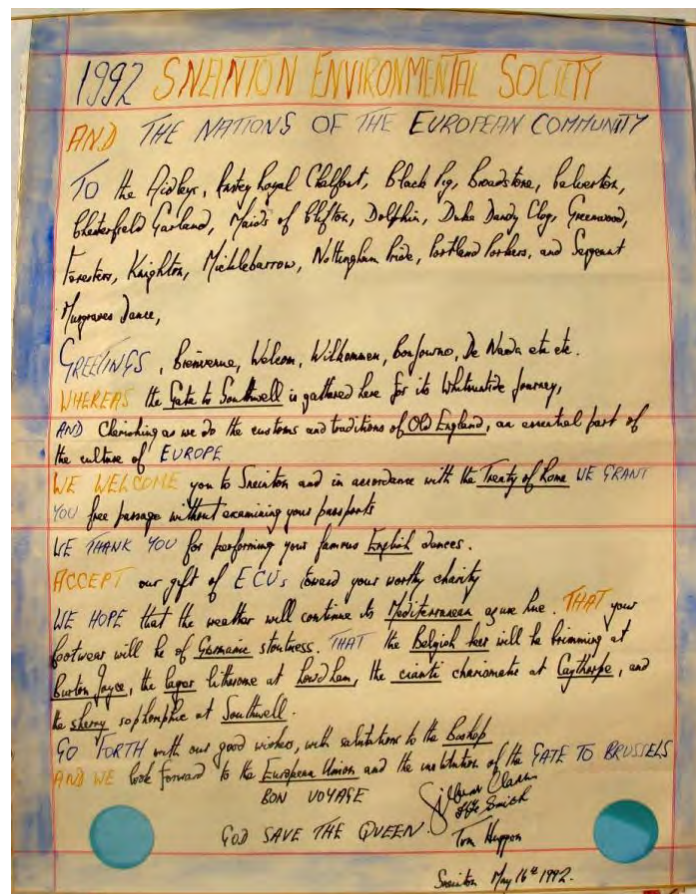 1992 SNEINTON ENVIRONMENTAL SOCIETY
AND THE NATIONS OF THE EUROPEAN COMMUNITY
TO the Aidleys, Royal Chalfont, Black Pig, Broadstone, Calverton,
Chesterfield Garland, Maids of Clifton, Dolphin, Duke Dandy Clog, Greenwood,
Foresters, Knighton, Micklebarrow, Nottingham Pride, Portland Porkers, and Sergeant
Musgraves Dance,
GREETINGS, Bienvenue, Welcom, Wilkommen, Bonjourno, De Nada etc etc.
WHEREAS the Gate to Southwell is gathered here for its Whitsuntide Journey,
AND Cherishing as we do the customs and traditions of Old England, an essential part of
the culture of EUROPE
WE WELCOME you to Sneinton and in accordance with the Treaty of Rome WE GRANT
YOU free passage without examining your passports
WE THANK YOU for performing your famous English dances.
ACCEPT our gift of ECUs toward your worthy charity
WE HOPE that the weather will continue its Mediterranean azure hue. THAT your
footwear will be of Germanic stoutness. THAT the Belgish beer will be brimming at
Burton Joyce, the lager lithsome at Lowdham, the cianti charismatic at Caythorpe, and
the sherry sophorific at Southwell.
GO FORTH with our good wishes, with salutations to the Bishop
AND WE look forward to the European Union and the institution of the GATE TO BRUSSELS
BON VOYAGE
Smith
GOD SAVE THE QUEEN.
Tom Huggon
Sneinton May 16th 1992.